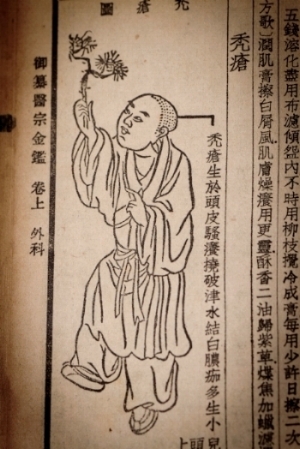 五錢溶化盡用布濾傾盌內不時用柳枝攪冷成膏每用少許日擦二次
方歌〕潤肌膏擦白屑風肌膚燥癢用更靈酥香二油歸紫草煠焦加蠟濾
禿瘡
禿瘡生於頭皮騷癢撓破津水結白膿痂多生小兒
頭上
禿瘡圖
御纂醫宗金鑑 卷上 外科